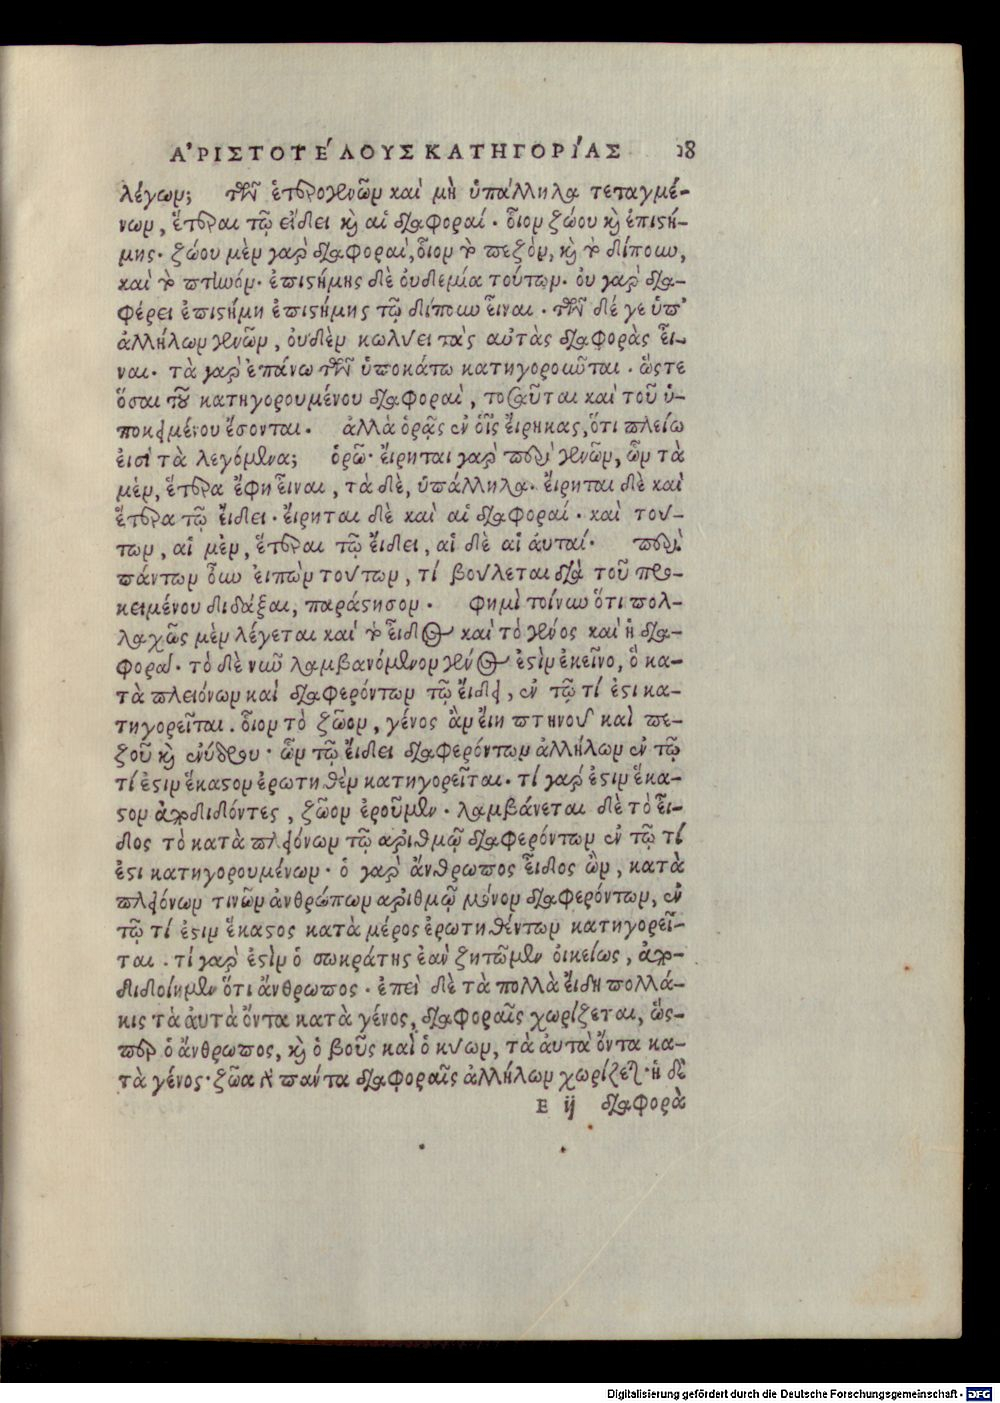 ΑʼΡΙΣΤΟΤΕΛΟΥΣ ΚΑΤΗΓΟΡΙΑΣ 28
λέγων; τῶν ἑτερογενῶν καὶ μὴ ὑπάλληλα τεταγμέ-
νων, ἕτεραι τῷ εἴδει κὶ αἱ διαφοραί. οἷον ζώου κὶ ἐπιστή-
μης. ζώου μὲν γὰρ διαφοραὶ, οἷον τὸ πεζὸν, κὶ τὸ δίπουν,
καὶ τὸ πτινόν. ἐπιστήμης δὲ ὀυδεμία τούτων. ὀυ γὰρ δια-
φέρει ἐπιστήμη ἐπιστήμης τῷ δίπουν εἶναι. τῶν δέ γε ὑπ'
ἀλλήλων γενῶν, ὀυδὲν κωλύει τὰς αὐτὰς διαφορὰς εἶ-
ναι. τὰ γὰρ ἐπάνω τῶν ὑποκάτω κατηγοροῦνται. ὥστε
ὅσαι τοῦ κατηγορουμένου διαφοραὶ, τοσαῦται καὶ τοῦ ὑ-
ποκειμένου ἔσονται. ἀλλὰ ὁρᾷς ἐν οἷς ἔιρηκας, ὅτι πλείω
ἐισὶ τὰ λεγόμενα; ὁρῶ. ἔιρηται γὰρ περὶ γενῶν, ὧν τὰ
μὲν, ἕτερα ἔφη εἶναι, τὰ δὲ, ὑπάλληλα. ἔιρηται δὲ καὶ
ἕτερα τῷ ἔιδει. ἔιρηται δὲ καὶ αἱ διαφοραί. καὶ τού-
των, αἱ μὲν, ἕτεραι τῷ ἔιδει, αἱ δὲ αἱ ἀυταί. περὶ
πάντων οὖν ἐιπὼν τούτων, τί βούλεται διὰ τοῦ προ-
κειμένου διδάξαι, παράστησον. φημὶ τοίνυν ὅτι πολ-
λαχῶς μὲν λέγεται καὶ τὸ εἶδος καὶ τὸ γένος καὶ ἡ δια-
φορά. τὸ δὲ νῦν λαμβανόμενον γένος ἐστὶν ἐκεῖνο, ὃ κα-
τὰ πλειόνων καὶ διαφερόντων τῷ ἔιδει, ἐν τῷ τί ἐστι κα-
τηγορεῖται. οἷον τὸ ζῶον, γένος ἂν ἔιη πτηνοῦ καὶ πε-
ζοῦ κὶ ἐνύδρου. ὧν τῷ ἔιδει διαφερόντων ἀλλήλων ἐν τῷ
τί ἐστιν ἕκαστον ἐρωτηθὲν κατηγορεῖται. τί γάρ ἐστιν ἕκα-
στον ἀποδιδόντες, ζῶον ἐροῦμεν. λαμβάνεται δὲ τὸ εἶ-
δος τὸ κατὰ πλειόνων τῷ ἀριθμῷ διαφερόντων ἐν τῷ τί
ἐστι κατηγορουμένων. ὁ γὰρ ἄνθρωπος εἶδος ὢν, κατὰ
πλειόνων τινῶν ἀνθρώπων ἀριθμῷ μόνον διαφερόντων, ἐν
τῷ τί ἐστιν ἕκαστος κατὰ μέρος ἐρωτηθέντων κατηγορεῖ-
ται. τί γάρ ἐστὶν ὁ σωκράτης ἐὰν ζητῶμεν ὀικείως, ἀπο-
διδοίημεν ὅτι ἄνθρωπος. ἐπεὶ δὲ τὰ πολλὰ ἔιδη πολλά-
κις τὰ ἀυτὰ ὄντα κατὰ γένος, διαφοραῖς χωρίζεται, ὥς-
περ ὁ ἄνθρωπος, κὶ ὁ βοῦς καὶ ὁ κύων, τὰ ἀυτὰ ὄντα κα-
τὰ γένος. ζῶα γὰρ πάντα διαφοραῖς ἀλλήλων χωρίζεται. ἡ δὲ
E ij διαφορὰ
Digitalisierung gefördert durch die Deutsche Forschungsgemeinschaft - DFG